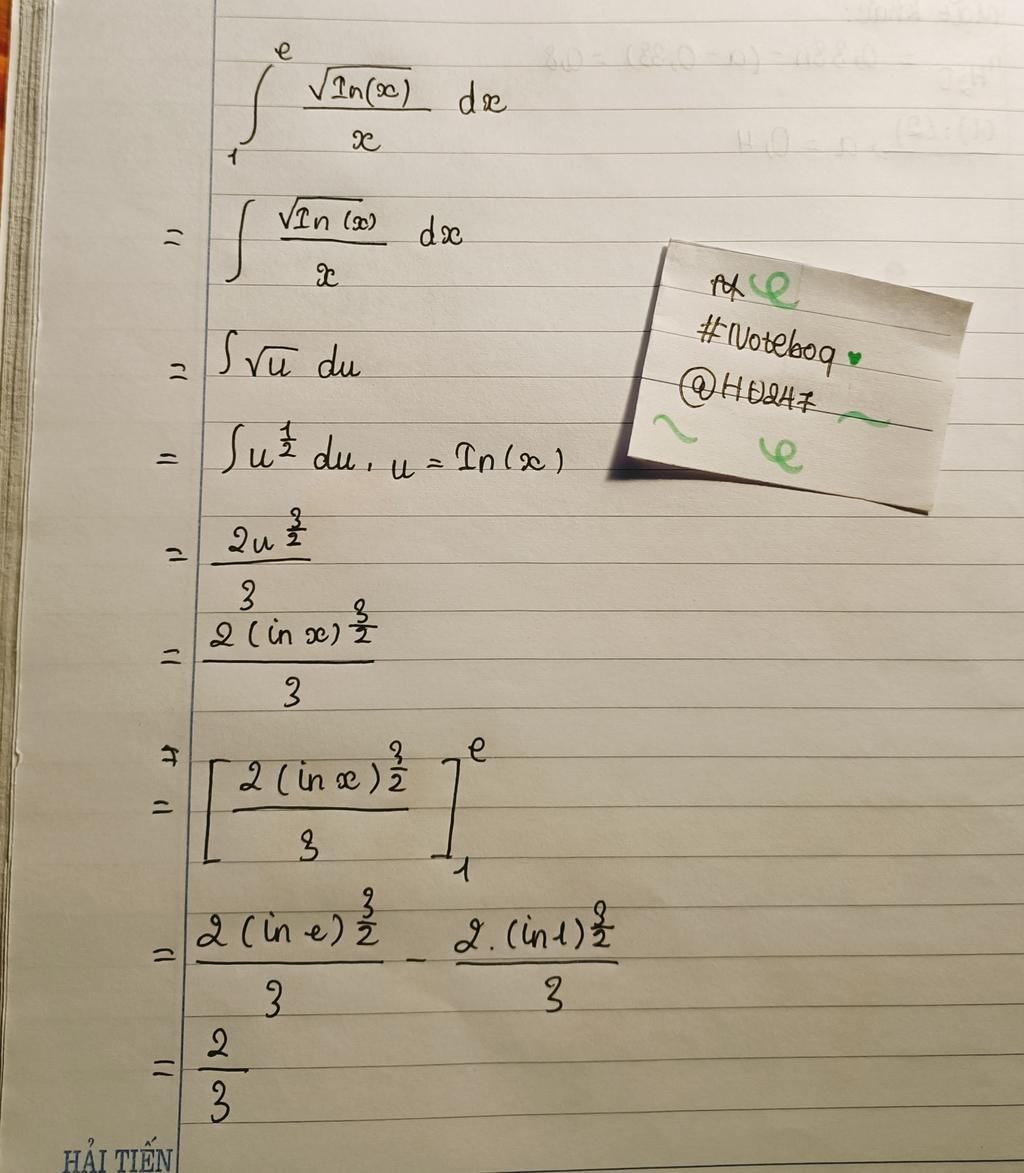 ∫₁ᵉ √In(x)/x dx
= ∫ √In(x)/x dx
= ∫√u du
= ∫u^(1/2) du, u = In(x)
= 2u^(3/2)/3
= 2(in x)^(3/2)/3
= [2(in x)^(3/2)/3]₁ᵉ
= 2(in e)^(3/2)/3 - 2.(in 1)^(3/2)/3
= 2/3
#Noteboq
@HD247
HẢI TIẾN